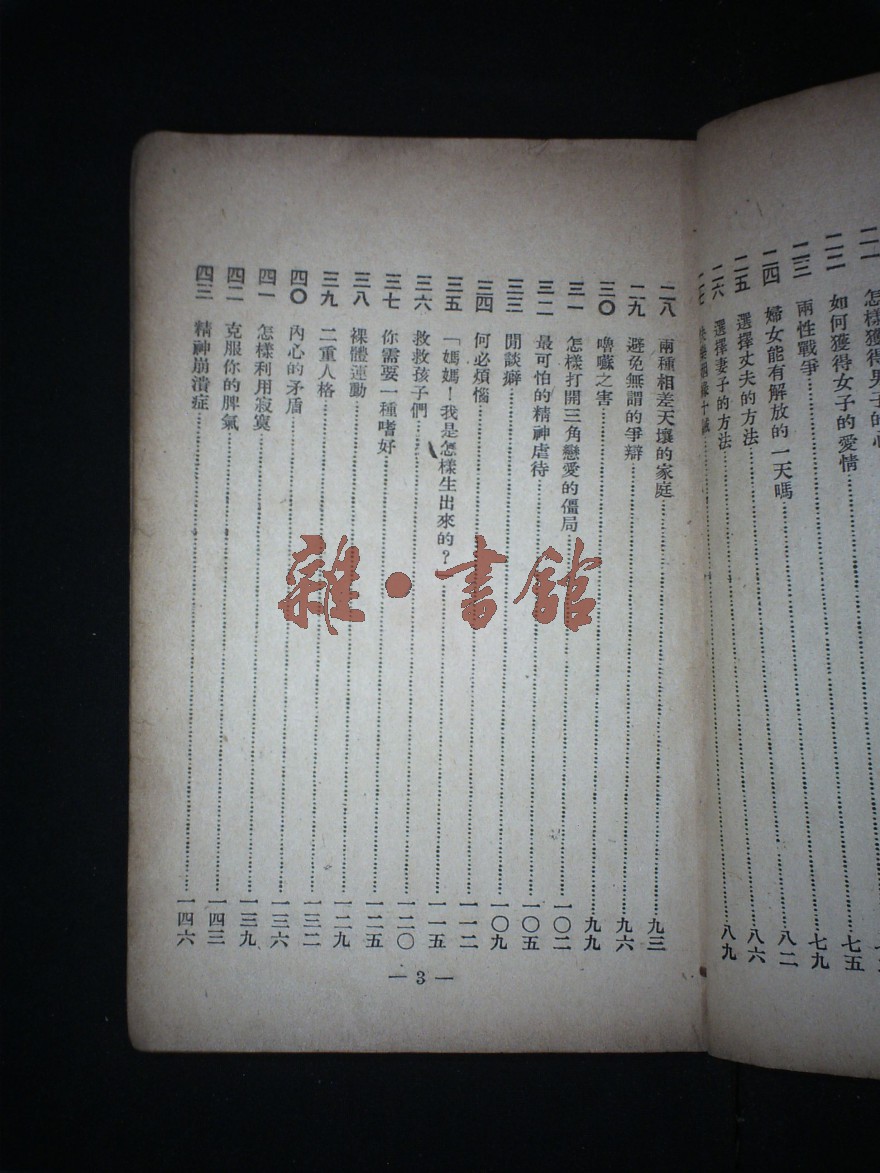 二一 怎樣獲得男子的心
二二 如何獲得女子的愛情……七五
二三 兩性戰爭……七九
二四 婦女能有解放的一天嗎……八二
二五 選擇丈夫的方法……八六
二六 選擇妻子的方法……八九
二七
二八 兩種相差天壤的家庭……九三
二九 避免無謂的爭辯……九六
三〇 嚕囌之害……九九
三一 怎樣打開三角戀愛的僵局……一〇二
三二 最可怕的精神虐待……一〇五
三三 閒談癖……一〇九
三四 何必煩惱……一一二
三五 「媽媽!我是怎樣生出來的?……一一五
三六 救救孩子們……一二〇
三七 你需要一種嗜好……一二五
三八 裸體運動……一二九
三九 二重人格……一三二
四〇 內心的矛盾……一三六
四一 怎樣利用寂寞……一三九
四二 克服你的脾氣……一四三
四三 精神崩潰症……一四六
— 3 —
雜·書館